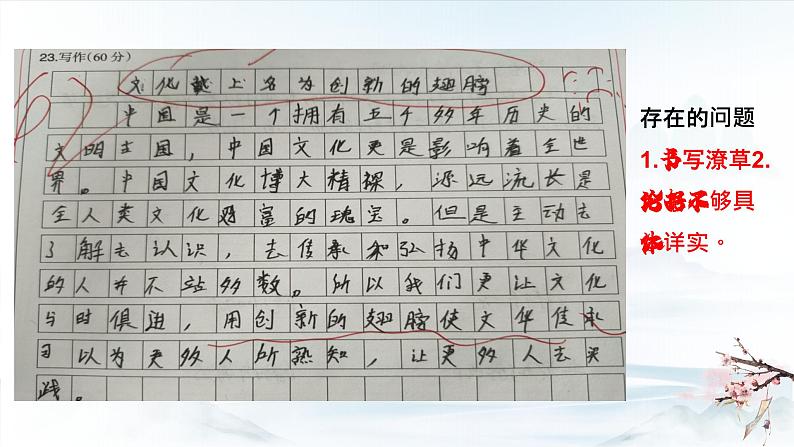 23.写作(60分)
文化戴上名为创新的翅膀
中国是一个拥有五千多年历史的
文明古国，中国文化更是影响着全世
界。中国文化博大精深，源远流长是
全人类文化财富的瑰宝。但是主动去
了解去认识，去传承和弘扬中华文化
的人并不占多数。所以我们更让文化
与时俱进，用创新的翅膀使文华传承
可以为更多人所熟知，让更多人去实
践。
存在的问题
1.书写潦草2.
不够具
体详实。